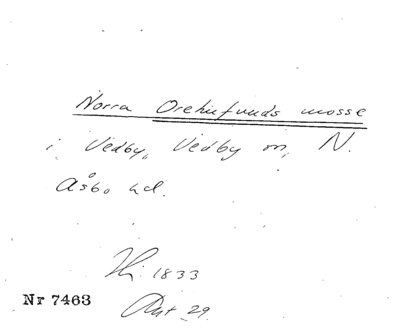 Norra Orehufvuds mosse
i Vedby, Vedby m, N.
Åsbo hd.
1833
Nr 7463
Ant 29